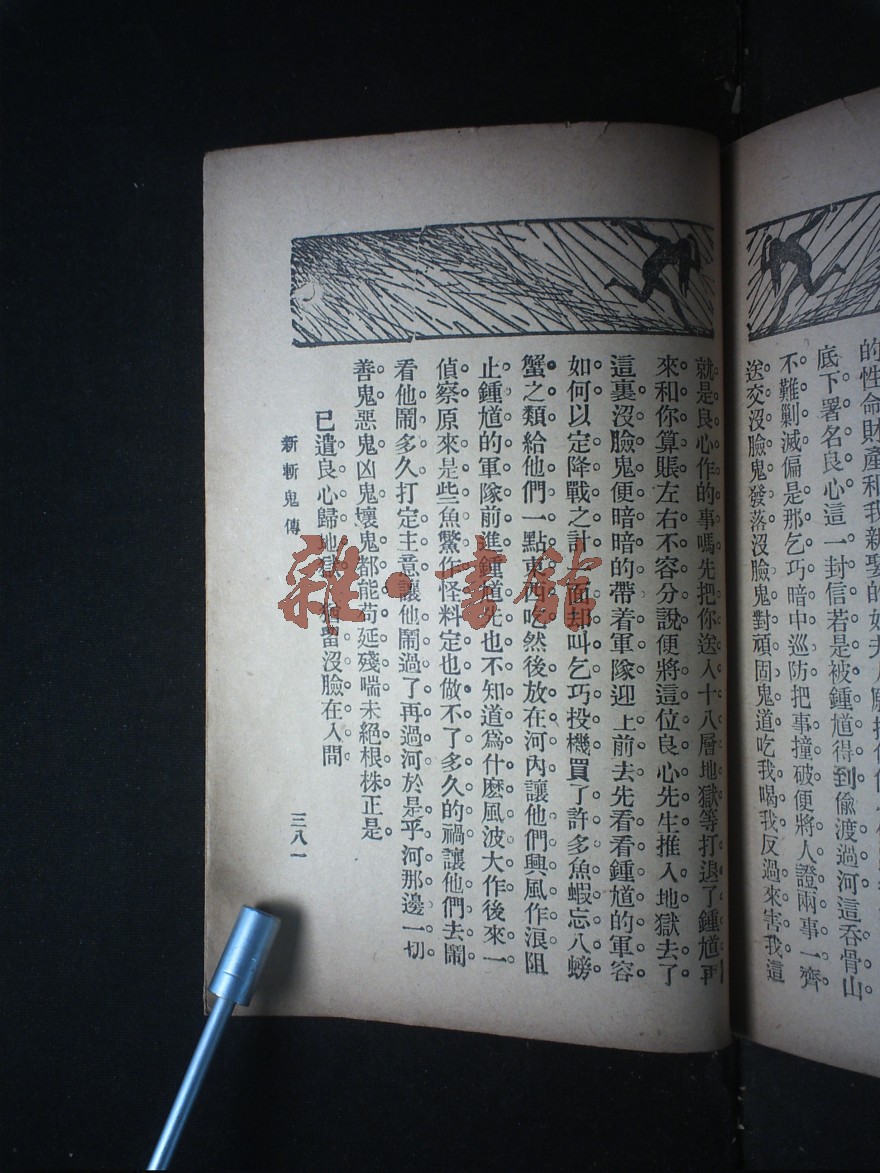 的性命財產和我新娶的
底下署名良心這一封信若是被鍾馗得到偷渡過河這吞骨山
不難剿滅偏是那乞巧暗中巡防把事撞破便將人證兩事一齊
送交沒臉鬼發落沒臉鬼對頑固鬼道吃我喝我反過來害我這
就是良心作的事嗎先把你送入十八層地獄等打退了鍾馗再
來和你算賬左右不容分說便將這位良心先生推入地獄去了
這裏沒臉鬼便暗暗的帶着軍隊迎上前去先看看鍾馗的軍容
如何以定降戰之計一面却叫乞巧投機買了許多魚蝦忘八螃
蟹之類給他們一點東西吃然後放在河內讓他們興風作浪阻
止鍾馗的軍隊前進鍾馗先也不知道爲什麼風波大作後來一
偵察原來是些魚鱉作怪料定也做不了多久的禍讓他們去鬧
看他鬧多久打定主意讓他鬧過了再過河於是乎河那邊一切
善鬼惡鬼凶鬼壞鬼都能苟延殘喘未絕根株正是
已遣良心歸地獄 留沒臉在人間
新斬鬼傳
三八一
雜·書館